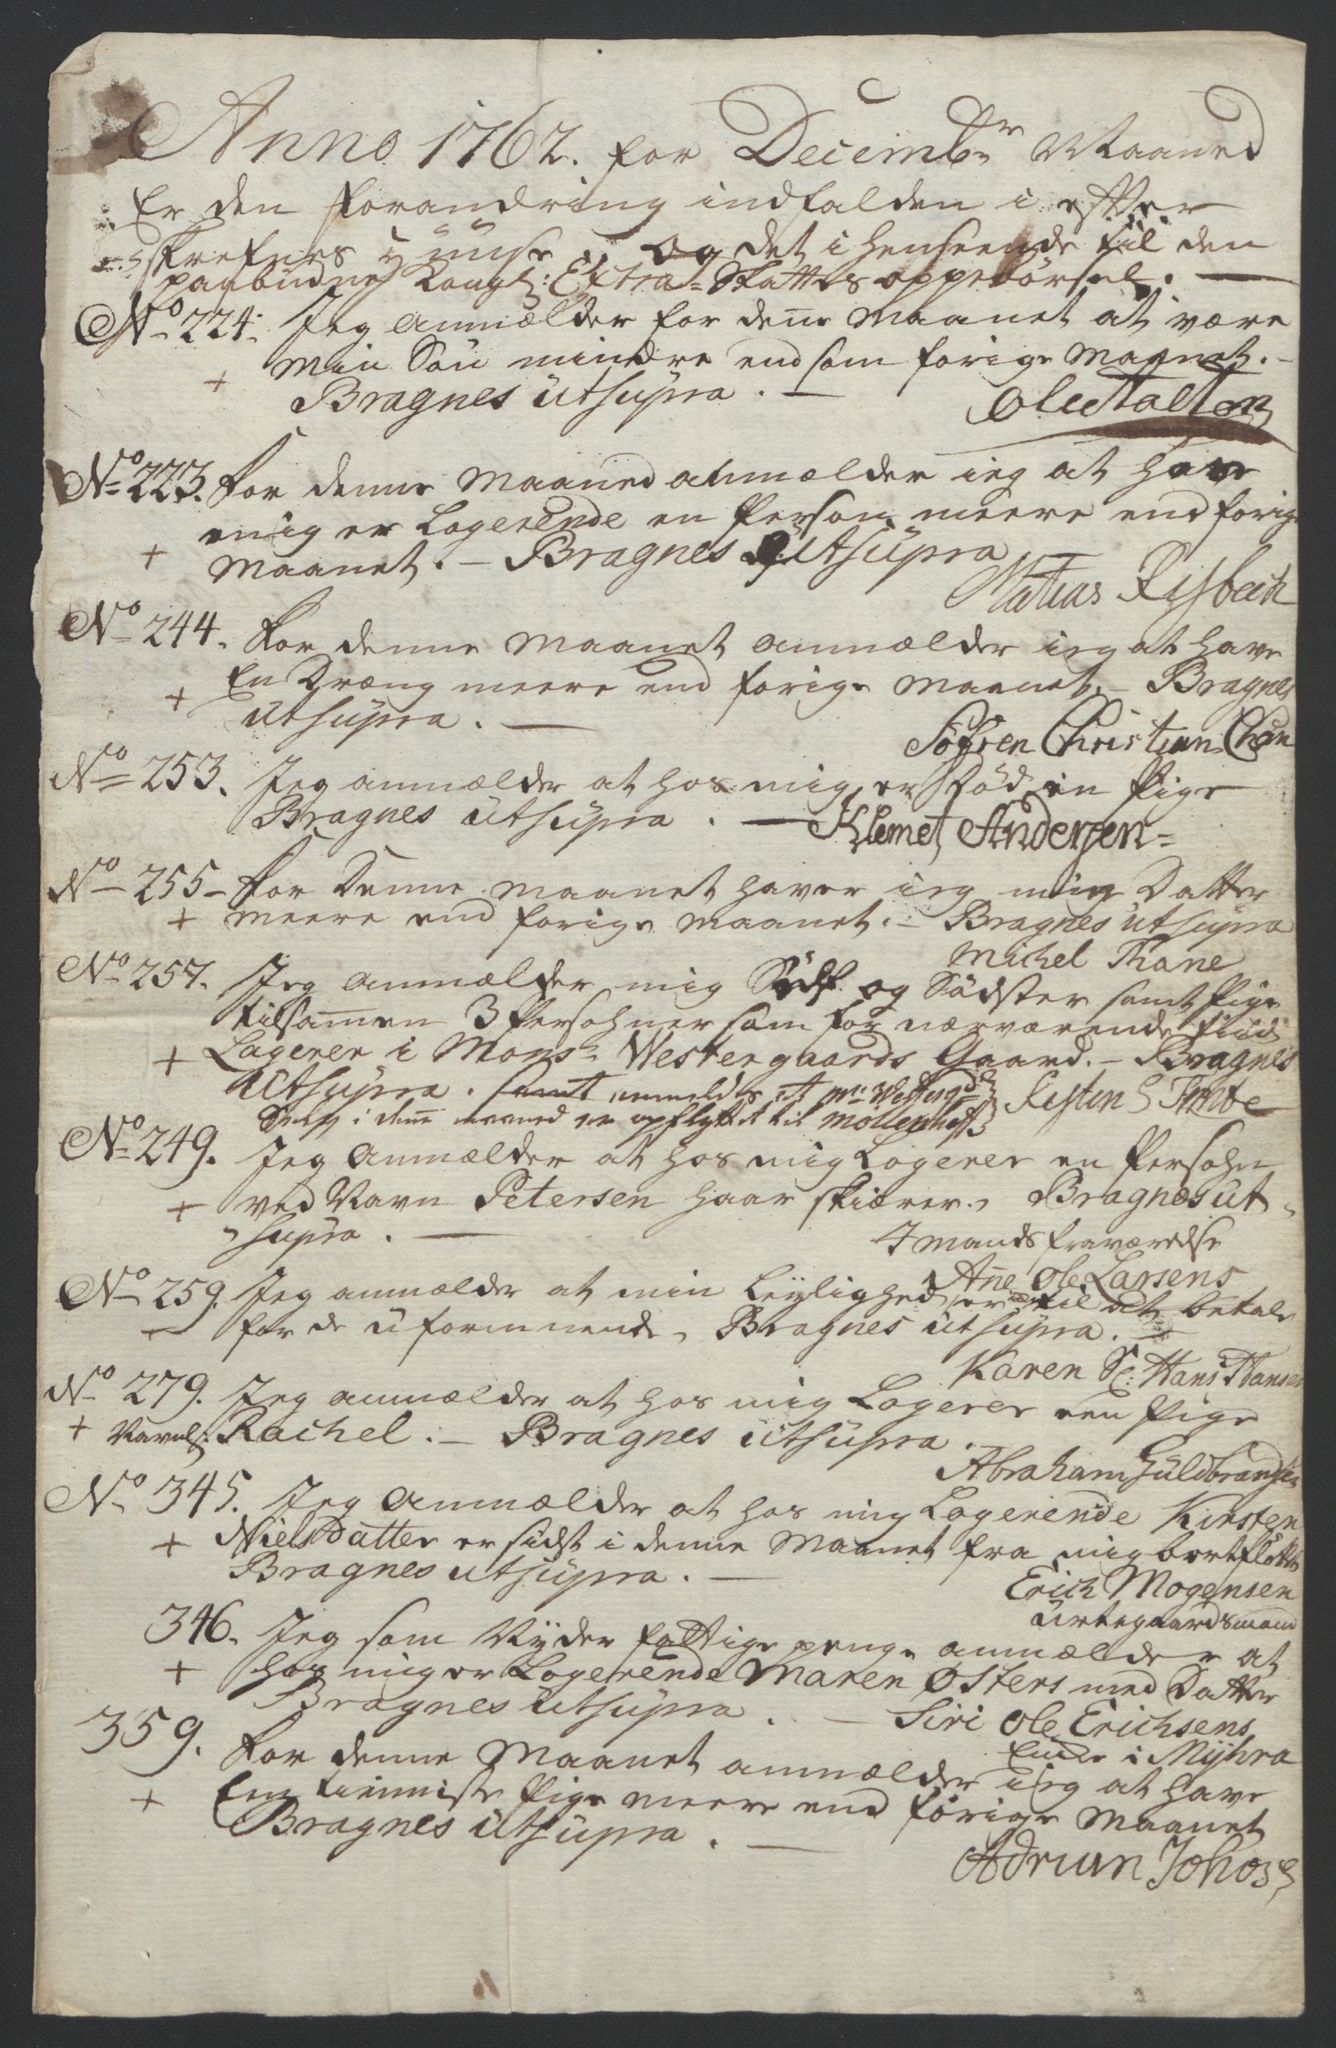 Anno 1762. for Decembr Maaned
Er den forandring indfalden i efter
skrefnes Huuse, og det i henseende til den
paabudne Kongl: Extra-Skattes oppebörsel.
No 224. Jeg anmælder for denne Maanet at være
min Sön mindre end som forige Maanet.
+ Bragnes ut supra.
No 223. For denne Maaned anmælder ieg at hos
mig er Logerende en Person meere end forige
+ Maanet. - Bragnes ut supra
Matias
No 244. For denne Maanet anmælder ieg at have
+ En Dræng meere end forige Maanet. - Bragnes
ut supra.
Söfren Christian
No 253. Jeg anmælder at hos mig er Föd en Pige
Bragnes ut supra. Klemet Andersen
No 255 - For Denne maanet haver ieg min Datter
+ meere end forige maanet. - Bragnes ut supra
Michel Thane
No 257. Jeg anmælder mig Self og Södster samt Pige
tilsamen 3 Persohner som for nærværende tiid
+ Logerer i Monsr Westergaards Gaard. - Bragnes
ut supra. Samt anmeldes at
i denne maaned er opflyttet til
No 249. Jeg Anmælder at hos mig Logerer en Persohn
+ ved Navn Petersen haar skiærer. Bragnes ut
supra.
I mands fraværelse
Ane Ole Larsens
No 259. Jeg anmælder at min Leylighed er til at betale
for de uformuende, Bragnes ut supra.
Karen Sl: Hans Hansen
No 279. Jeg anmælder at hos mig Logerer een Pige
+ Navnl: Rachel. - Bragnes ut supra.
Abraham Guldbrandsen
No 345. Jeg Anmælder at hos mig Logerende Kirsten
+ NielsDatter er sidst i denne Maanet fra mig bortflöttet
Bragnes ut supra.
Erich Mogensen
Urtegaardsmand
346. Jeg som Nyder fattige penge anmælder at
+ hos mig er Logerende Maren Osters med Datter
Bragnes ut supra. Siri Ole Erichsens
Encke i Myhra
359. For denne Maanet anmælder ieg at have
+ En tienniste Pige meere end forige Maanet
Bragnes ut supra.
Adrian